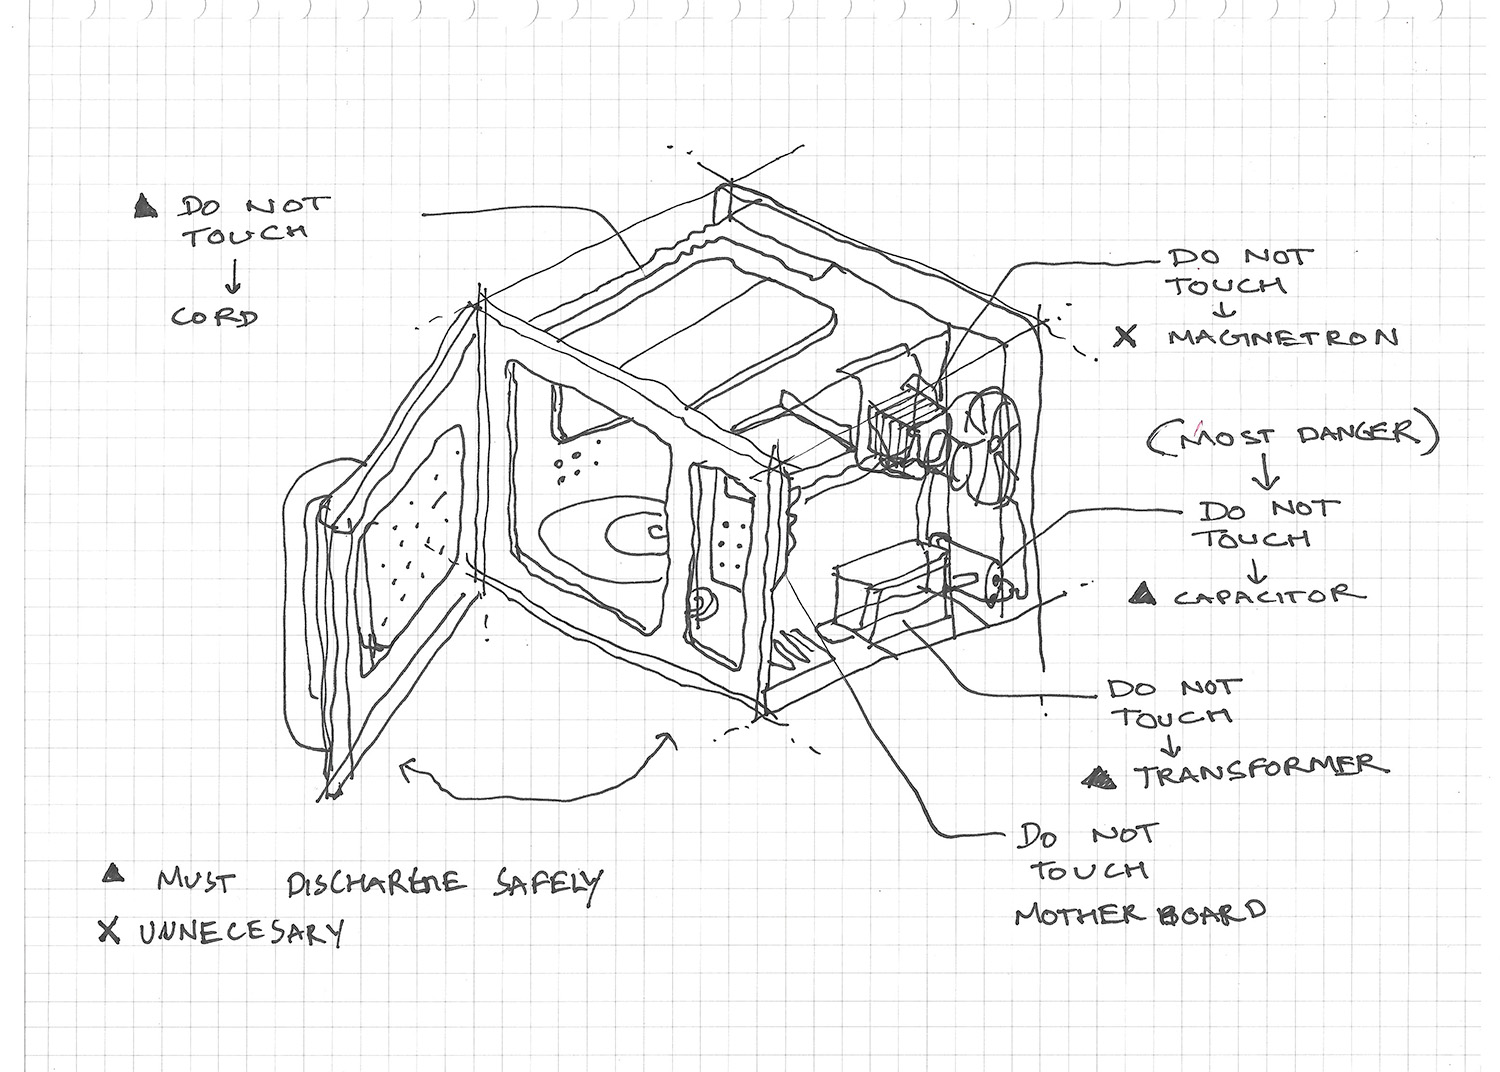 ▲ DO NOT
TOUCH
↓
CORD
DO NOT
TOUCH
↓
X MAGNETRON
(MOST DANGER)
↓
DO NOT
TOUCH
↓
▲ CAPACITOR
DO NOT
TOUCH
↓
▲ TRANSFORMER
DO NOT
TOUCH
MOTHER BOARD
▲ MUST DISCHARGE SAFELY
X UNNECESARY